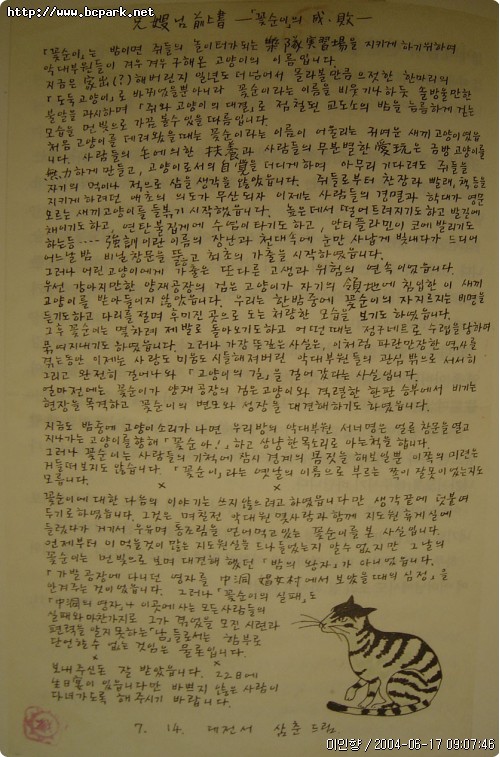 http://www.bcpark.net
兄嫂님 前上書 ―「꽃순이」의 成·敗―
「꽃순이」는 밤이면 쥐들의 놀이터가 되는 樂隊實習場을 지키게 하기 위하여
악대부원들이 겨우겨우 구해온 고양이의 이름입니다.
지금은 家出(?)해버린지 일년도 더 넘어서 몰라볼만큼 으젓한 한마리의
「도둑고양이」로 바뀌었을뿐 아니라 꽃순이라는 이름을 비웃기나하듯 솔방울만한
불알을 과시하며 「쥐와 고양이의 대결」로 점철된 교도소의 밤을 늠름하게 걷는
모습을 먼빛으로 가끔 볼수 있을 따름입니다.
처음 고양이를 데려왔을때는 꽃순이라는 이름이 어울리는 귀여운 새끼고양이였습
니다. 사람들의 손에 의한 扶養과 사람들의 무분별한 愛玩은 금방 고양이를
無力하게 만들고, 고양이로서의 自覺을 더디게하여 아무리 기다려도 쥐들을
자기의 먹이나 적으로 삼을 생각을 않았습니다. 쥐들로부터 찬장과 빨래, 책들을
지키게 하려던 애초의 의도가 무산되자 이제는 사람들의 경멸과 학대가 영문
모르는 새끼고양이를 들볶기 시작했습니다. 높은데서 떨어트려지기도 하고 발길에
채이기도하고, 연탄불집게에 수염이 타기도 하고, 안티플라민이 코에 발리기도
하는등 ···· 強訓이란 이름의 장난과 천대속에 눈만 사납게 빛내다가 드디어
어느날 밤 비닐창문을 뚫고 최초의 가출을 시작하였습니다.
그러나 어린 고양이에게 가출은 또다른 고생과 위험의 연속이었습니다.
우선 강아지만한 양재공장의 검은 고양이가 자기의 領地에 침입한 이 새끼
고양이를 받아들이지 않았습니다. 우리는 한밤중에 꽃순이의 자지르지는 비명을
듣기도하고 다리를 절며 후미진 곳으로 도는 처량한 모습을 보기도 하였습니다.
그후 꽃순이는 몇차례 제발로 돌아오기도하고 어떤 때는 정구네트로 수렵을 당하여
묶여지내기도 하였습니다. 그러나 가장 뜻깊은 사실은, 이처럼 파란만장한 역사를
겪는동안 이제는 사랑도 미움도 시들해져버린 악대부원들의 관심밖으로 서서히
그리고 완전히 걸어나와 「고양이의 길」을 걸어갔다는 사실입니다.
얼마전에는 꽃순이가 양재공장의 검은고양이와 격렬한 한판 승부에서 비기는
현장을 목격하고 꽃순이의 변모와 성장을 대견해하기도 하였습니다.
지금도 밤중에 고양이소리가 나면 우리방의 악대부원 서너명은 얼른 창문을 열고
지나가는 고양이를 향해 「꽃순아!」하고 상냥한 목소리로 아는체를 합니다.
그러나 꽃순이는 사람들의 기척에 잠시 경계의 몸짓을 해보일뿐 이쪽의 미련은
거들떠보지도 않습니다. 「꽃순이」라는 옛날의 이름으로 부르는 쪽이 잘못이었는지도
모릅니다.
× ×
꽃순이에 대한 다음의 이야기는 쓰지 않으려고 하였습니다만 생각끝에 덧붙여
두기로 하였습니다. 그것은 며칠전 악대원 몇사람과 함께 지도원 휴게실에
들렀다가 거기서 우유며 통조림을 얻어먹고 있는 꽃순이를 본 사실입니다.
언제부터 이 먹을것이 많은 지도원실을 드나들었는지 알수 없지만 그날의
꽃순이는 먼빛으로 보며 대견해 했던 「밤의 왕자」가 아니었습니다.
「가발공장에 다니던 영자를 中洞 娼女村에서 보았을 때의 심정」을
안겨주는것이었습니다. 그러나 「꽃순이의 실패」도
「中洞의 영자」나 이곳에 사는 모든 사람들의
실패와 마찬가지로 그가 겪었을 모진 시련과
편력을 알지못하는 「남」들로서는 함부로
단언할수 없는 것임은 물론입니다.
× ×
보내주신 돈 잘 받았습니다. 22日에
生日宴이 있습니다만 바쁘지 않은 사람이
다녀가도록 해 주시기 바랍니다.
7. 14. 대전서 삼촌 드림
이인향 / 2004-06-17 09:07:46